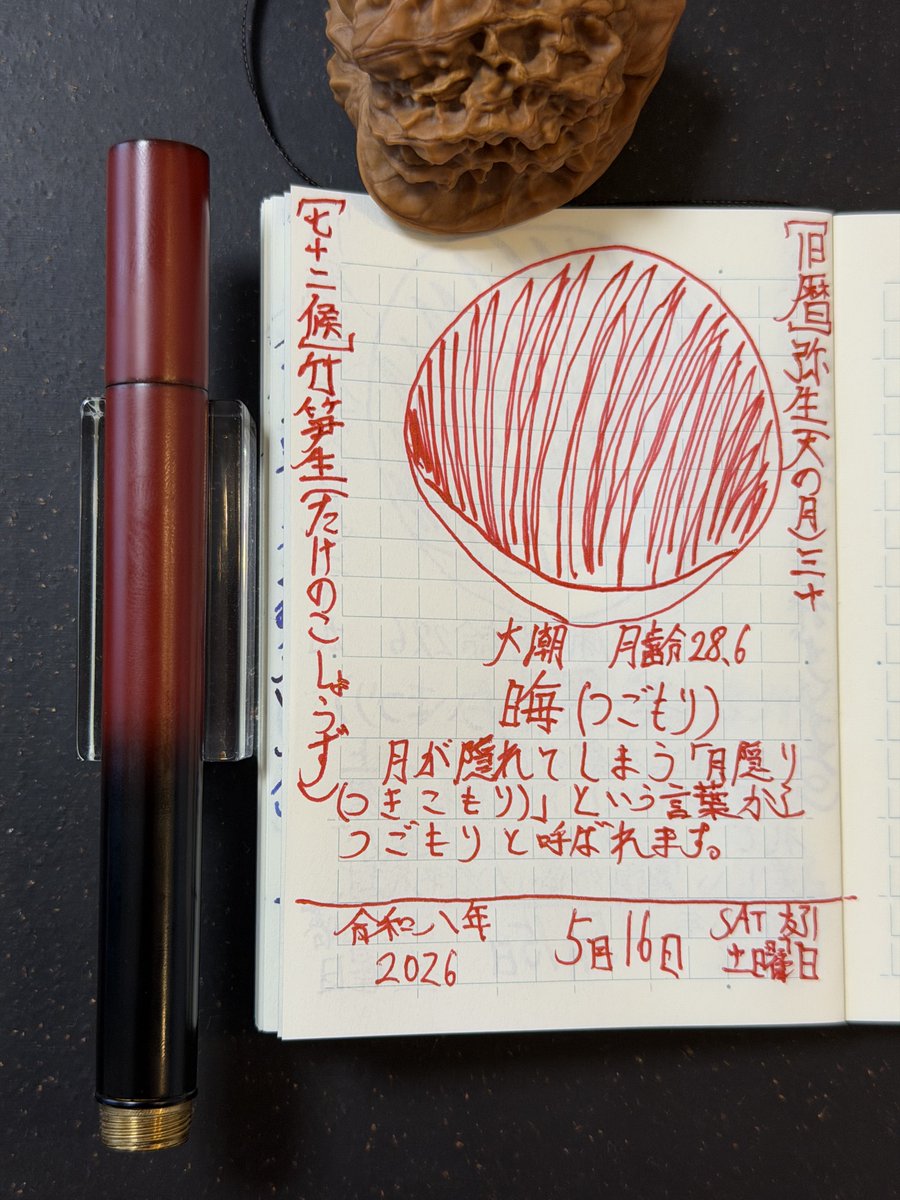 [旧暦]弥生(夭の月)三十
[七十二候]竹笋生(たけのこしょうず)
大潮 月齢28.6
晦(つごもり)
月が隠れてしまう「月隠り
(つきこもり)」という言葉から
つごもりと呼ばれます。
令和八年
2026
5月16日
SAT 友引
土曜日